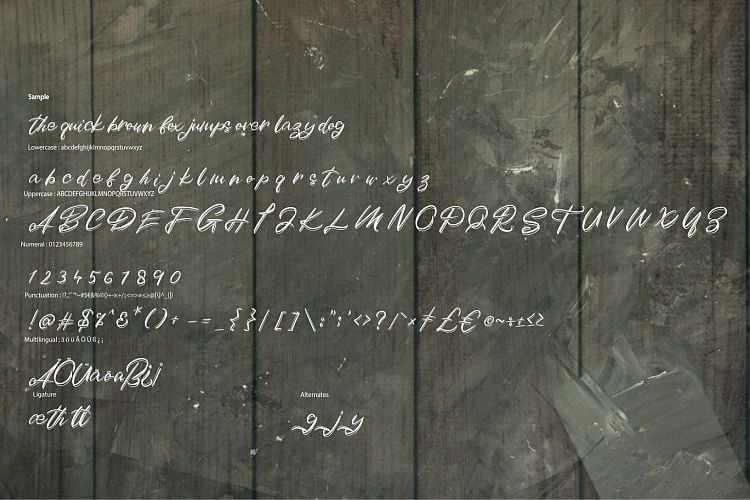 Sample
the quick brown fox jumps over lazy dog
Lowercase : abcdefghijklmnopqrstuvwxyz
a b c d e f g h i j k l m n o p q r s t u r w x y z
Uppercase : ABCDEFGHIJKLMNOPQRSTUVWXYZ
A B C D E F G H I J K L M N O P Q R S T U V W X Y Z
Numeral : 0123456789
1 2 3 4 5 6 7 8 9 0
Punctuation :
! @ # $ % ^ & * ( ) + - = _ { } | [ ] \ : " ; ' < > ? / ` ~ × ≠ £ € @ ~ ÷ ± ≤ ≥
Multilingual : ä ö ü Ä Ö Ü ß ¿ ¡
Ligature
Alternates
æ th tt
g j y